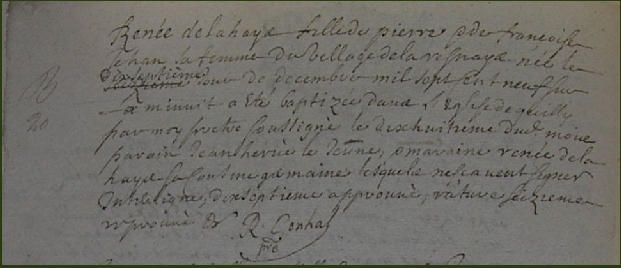 Renée delahaye fille de pierre & de francoise
Jehan sa femme du village de la res naye née le
dixseptieme
jour de decembre mil sept sent neuf sur
la minuit a été baptizée dans l'Eglise de
par moy prètre soussigné le dixhuitieme dud mois
parain Jean hervé le Jeune, & maraine renée dela
haye sa cousine germaine lesquels ne scavent signer
Interligne, dixseptieme approuvé, rature seizieme
approuvé R. Gonha
ptre
B
20